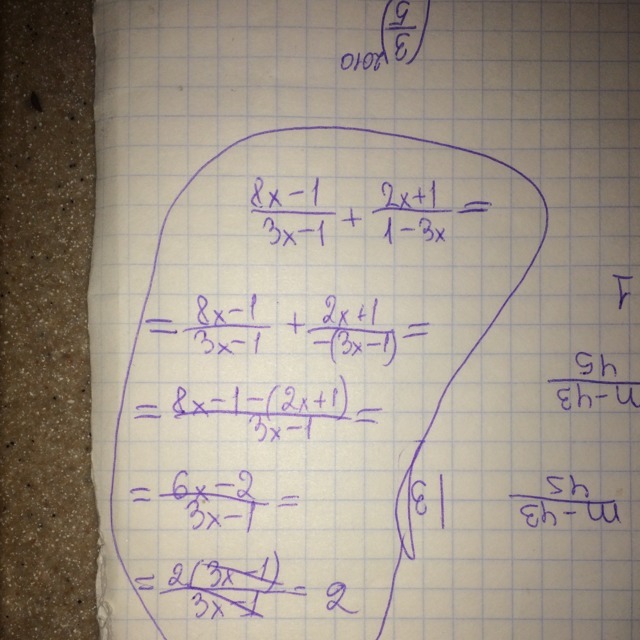 (3/5)^2010
(8x-1)/(3x-1) + (2x+1)/(1-3x) =
= (8x-1)/(3x-1) + (2x+1)/(-(3x-1)) =
= (8x-1-(2x+1))/(3x-1) =
= (6x-2)/(3x-1) =
= 2(3x-1)/(3x-1) = 2